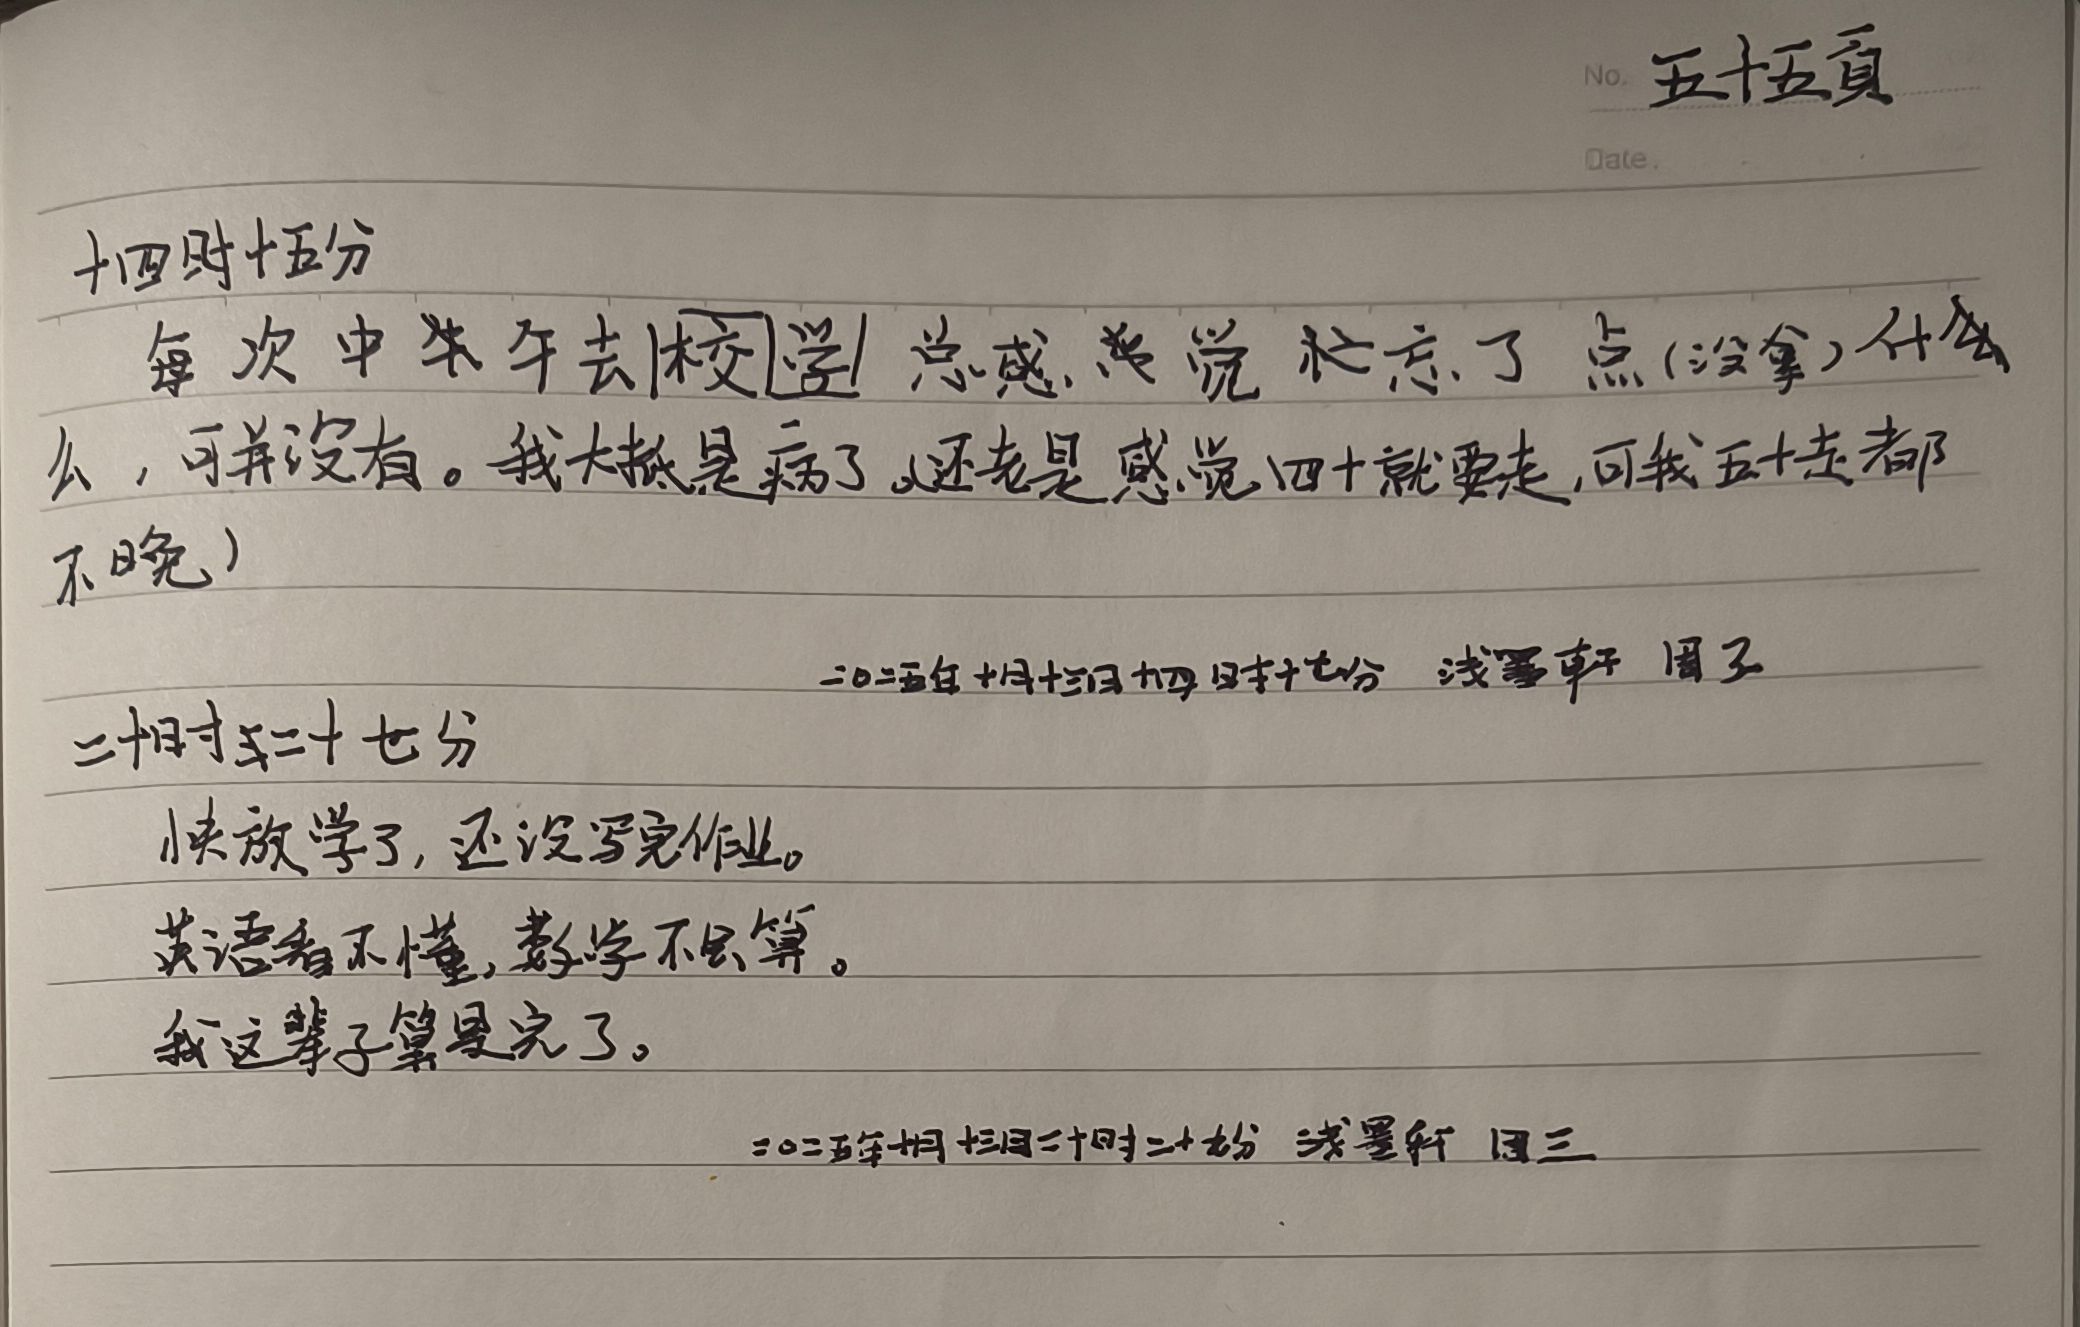 No. 五十五頁
Date.
十四时十五分
每次中午去校学总感觉忘了点(没拿)什么
么,可并没有。我大抵是病了。(还老是感觉四十就要走,可我五十走都
不晚)
二〇二五年十月十三日十四时十七分 浅墨轩 周三
二十时二十七分
快放学了,还没写完作业。
英语看不懂,数学不会算。
我这辈子算是完了。
二〇二五年十月十三日二十时二十九分 浅墨轩 周三